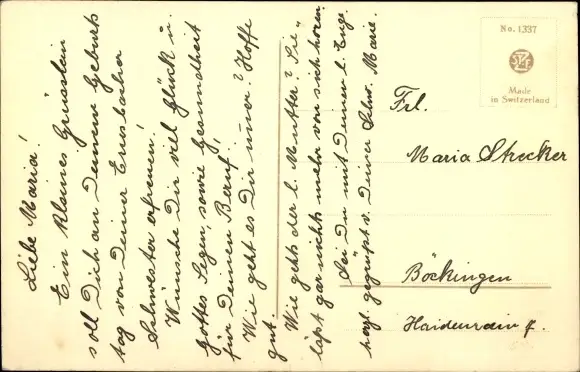 Liebe Maria!
Ein kleines Grüsslein
soll Dich an Deinem Geburts
tag von Deiner
Schwester erfreuen!
Wünsche Dir viel Glück u.
Gottes Segen, sowie Gesundheit
für Deinen Beruf!
Wie geht es Dir immer? Hoffe
gut.
Wie gehts der l. Mutter? Sie
läßt gar nichts mehr von sich hören.
Sei Du mit Deiner l.
herzl. gegrüßt v. Deiner Schw. Marie.
No. 1337
Made
in Switzerland
Frl.
Maria Strecker
Böckingen
Haidenrain